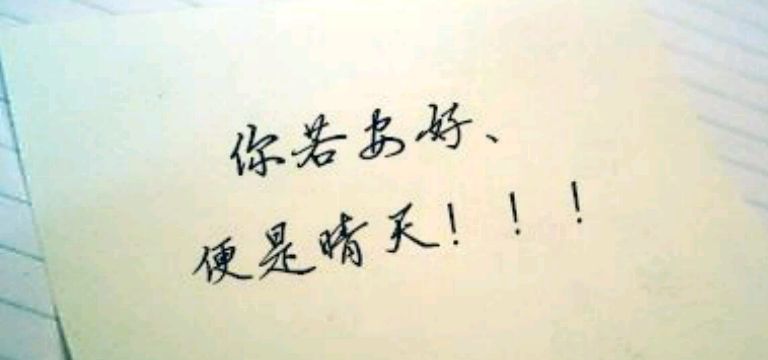 你若安好、
便是晴天！！！